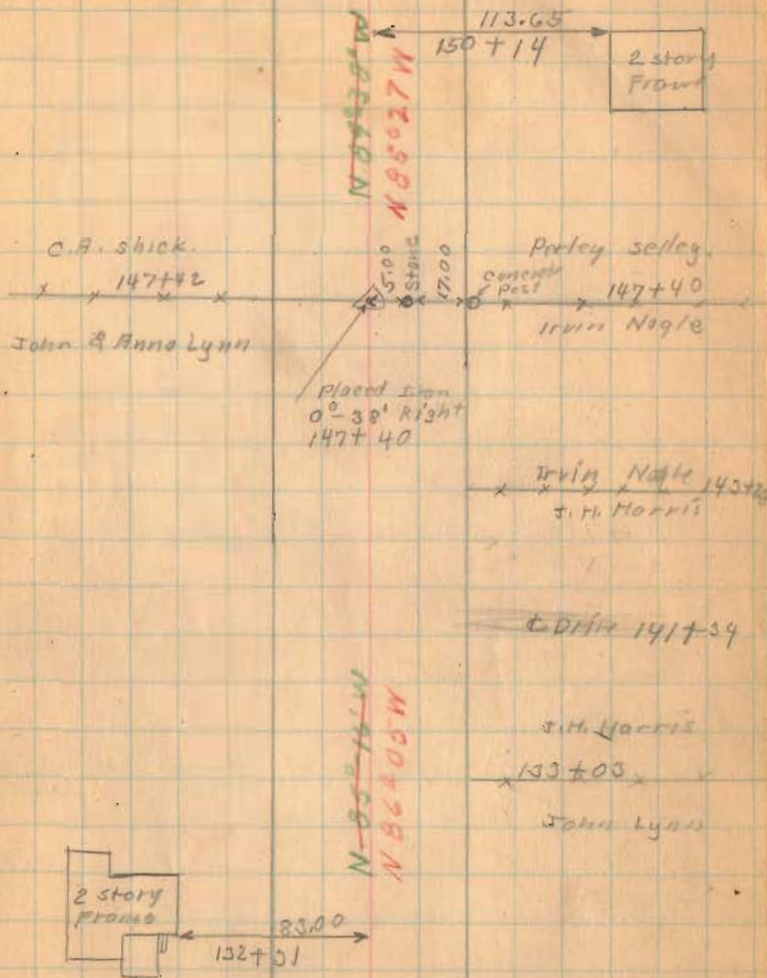 113.65
150+14
2 story
Frame
N 85°27'W
C.A. Shick.
147+42
John & Anna Lynn
5.00
Stone
17.00
Concrete
Post
Perley Selley.
147+40
Irvin Nagle
Placed Iron
0°-38' Right
147+40
Irvin Nagle
J.H. Harris
℄ Drive 141+34
J.H. Harris
133+03
John Lynn
N 86°05'W
2 story
Frame
83.00
132+31